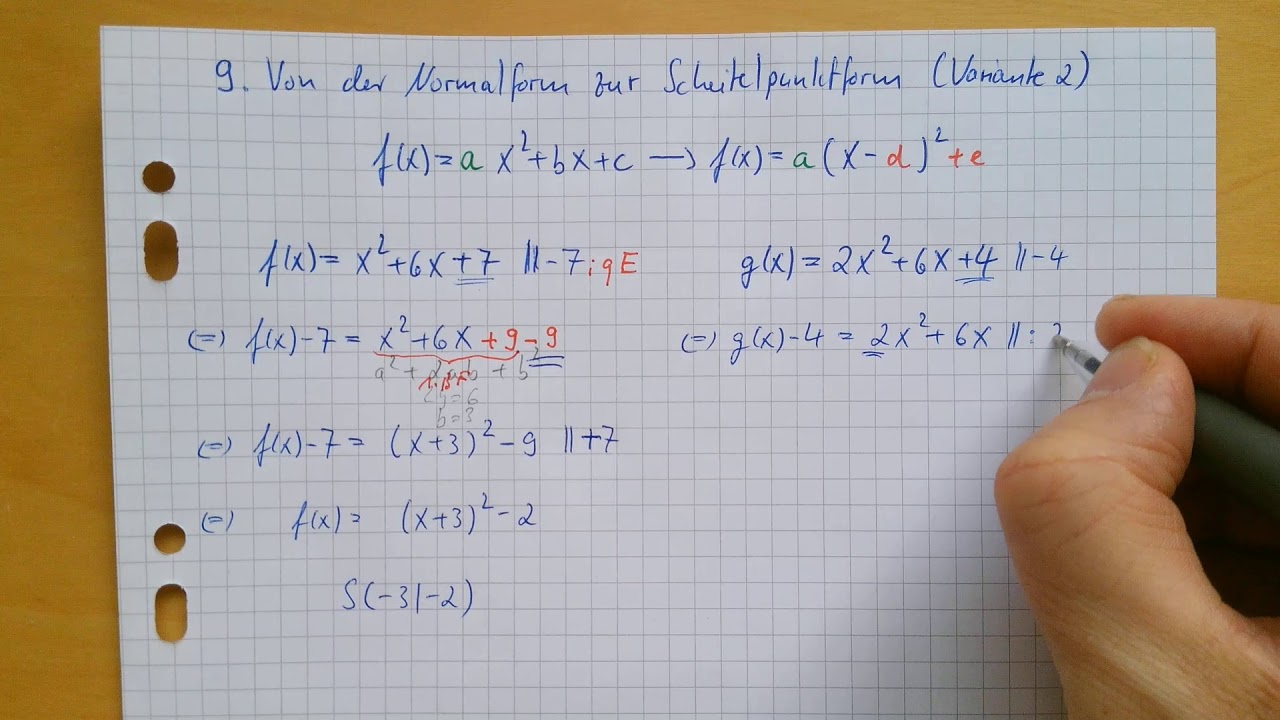 9. Von der Normalform zur Scheitelpunktform (Variante 2)
f(x) = a x² + bx + c → f(x) = a (x - d)² + e
f(x) = x² + 6x + 7 || - 7 ; qE
(=) f(x) - 7 = x² + 6x + 9 - 9
a² + 2ab + b²
1. BF
2b = 6
b = 3
(=) f(x) - 7 = (x + 3)² - 9 || + 7
(=) f(x) = (x + 3)² - 2
S(-3|-2)
g(x) = 2x² + 6x + 4 || - 4
(=) g(x) - 4 = 2x² + 6x || :